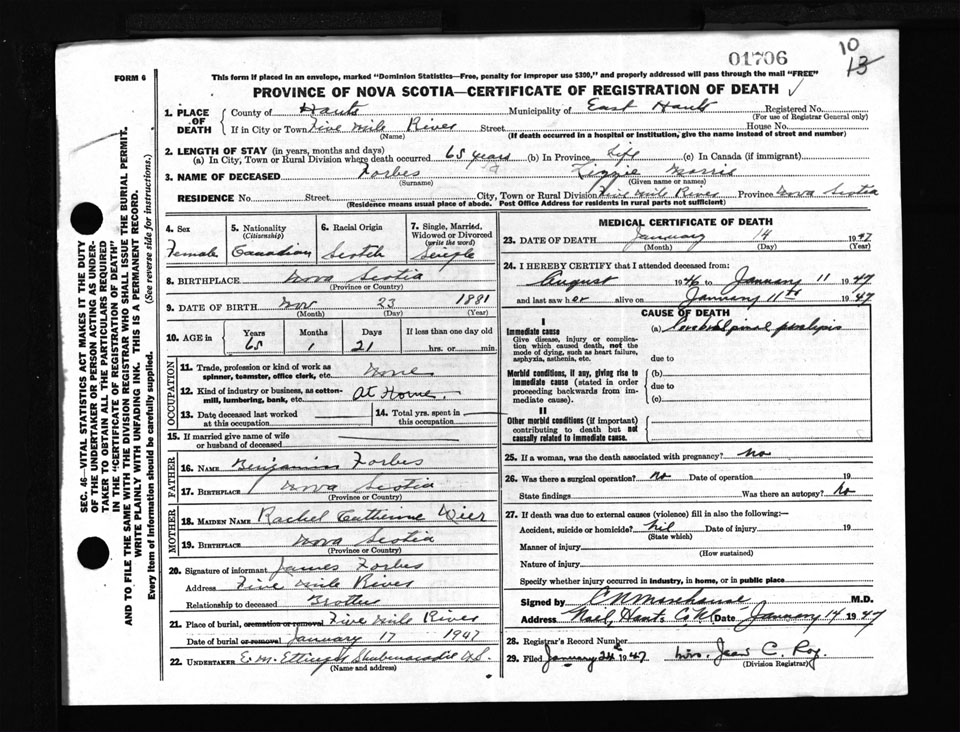 01706
10
13
FORM 6
This form if placed in an envelope, marked "Dominion Statistics—Free, penalty for improper use $300," and properly addressed will pass through the mail "FREE"
PROVINCE OF NOVA SCOTIA—CERTIFICATE OF REGISTRATION OF DEATH
1. PLACE OF DEATH County of Hants Municipality of East Hants Registered No.
(For use of Registrar General only)
If in City or Town Five Mile River Street House No.
(Name) (If death occurred in a hospital or institution, give the name instead of street and number)
2. LENGTH OF STAY (in years, months and days)
(a) In City, Town or Rural Division where death occurred 65 years (b) In Province Life (c) In Canada (if immigrant)
3. NAME OF DECEASED Forbes Lizzie Morris
(Surname) (Given name or names)
RESIDENCE No. Street City, Town or Rural Division Five Mile River Province Nova Scotia
(Residence means usual place of abode. Post Office Address for residents in rural parts not sufficient)
4. Sex Female
5. Nationality (Citizenship) Canadian
6. Racial Origin Scotch
7. Single, Married, Widowed or Divorced (write the word) Single
8. BIRTHPLACE Nova Scotia
(Province or Country)
9. DATE OF BIRTH Nov 23 1881
(Month) (Day) (Year)
10. AGE in Years Months Days If less than one day old
65 1 21 hrs. or min.
OCCUPATION
11. Trade, profession or kind of work as spinner, teamster, office clerk, etc. None
12. Kind of industry or business, as cotton-mill, lumbering, bank, etc. At Home.
13. Date deceased last worked at this occupation
14. Total yrs. spent in this occupation
15. If married give name of wife or husband of deceased
FATHER
16. NAME Benjamin Forbes
17. BIRTHPLACE Nova Scotia
(Province or Country)
MOTHER
18. MAIDEN NAME Rachel Catherine Wier
19. BIRTHPLACE Nova Scotia
(Province or Country)
20. Signature of informant James Forbes
Address Five Mile River
Relationship to deceased Brother
21. Place of burial, cremation or removal Five Mile River
Date of burial or removal January 17 1947
22. UNDERTAKER E. M. Ettinger Shubenacadie N.S.
(Name and address)
MEDICAL CERTIFICATE OF DEATH
23. DATE OF DEATH January 14 1947
(Month) (Day) (Year)
24. I HEREBY CERTIFY that I attended deceased from:
August 1946 to January 11 1947
and last saw her alive on January 11th 1947
CAUSE OF DEATH
I
Immediate cause
Give disease, injury or complication which caused death, not the mode of dying, such as heart failure, asphyxia, asthenia, etc.
(a) Cerebrospinal paralysis
due to
Morbid conditions, if any, giving rise to immediate cause (stated in order proceeding backwards from immediate cause).
(b)
due to
(c)
II
Other morbid conditions (if important) contributing to death but not causally related to immediate cause.
25. If a woman, was the death associated with pregnancy? No
26. Was there a surgical operation? No Date of operation 19
State findings Was there an autopsy? No
27. If death was due to external causes (violence) fill in also the following:—
Accident, suicide or homicide? Nil Date of injury 19
(State which)
Manner of injury
(How sustained)
Nature of injury
Specify whether injury occurred in industry, in home, or in public place
Signed by C N Morehouse M.D.
Address Noel, Hants Co NS Date January 14 1947
28. Registrar's Record Number
29. Filed January 24 1947 Mrs. Jean C. Roy.
(Division Registrar)
SEC. 46—VITAL STATISTICS ACT MAKES IT THE DUTY
OF THE UNDERTAKER OR PERSON ACTING AS UNDER-
TAKER TO OBTAIN ALL THE PARTICULARS REQUIRED
IN THE "CERTIFICATE OF REGISTRATION OF DEATH"
AND TO FILE THE SAME WITH THE DIVISION REGISTRAR WHO SHALL ISSUE THE BURIAL PERMIT.
WRITE PLAINLY WITH UNFADING INK. THIS IS A PERMANENT RECORD.
Every item of information should be carefully supplied. (See reverse side for instructions.)